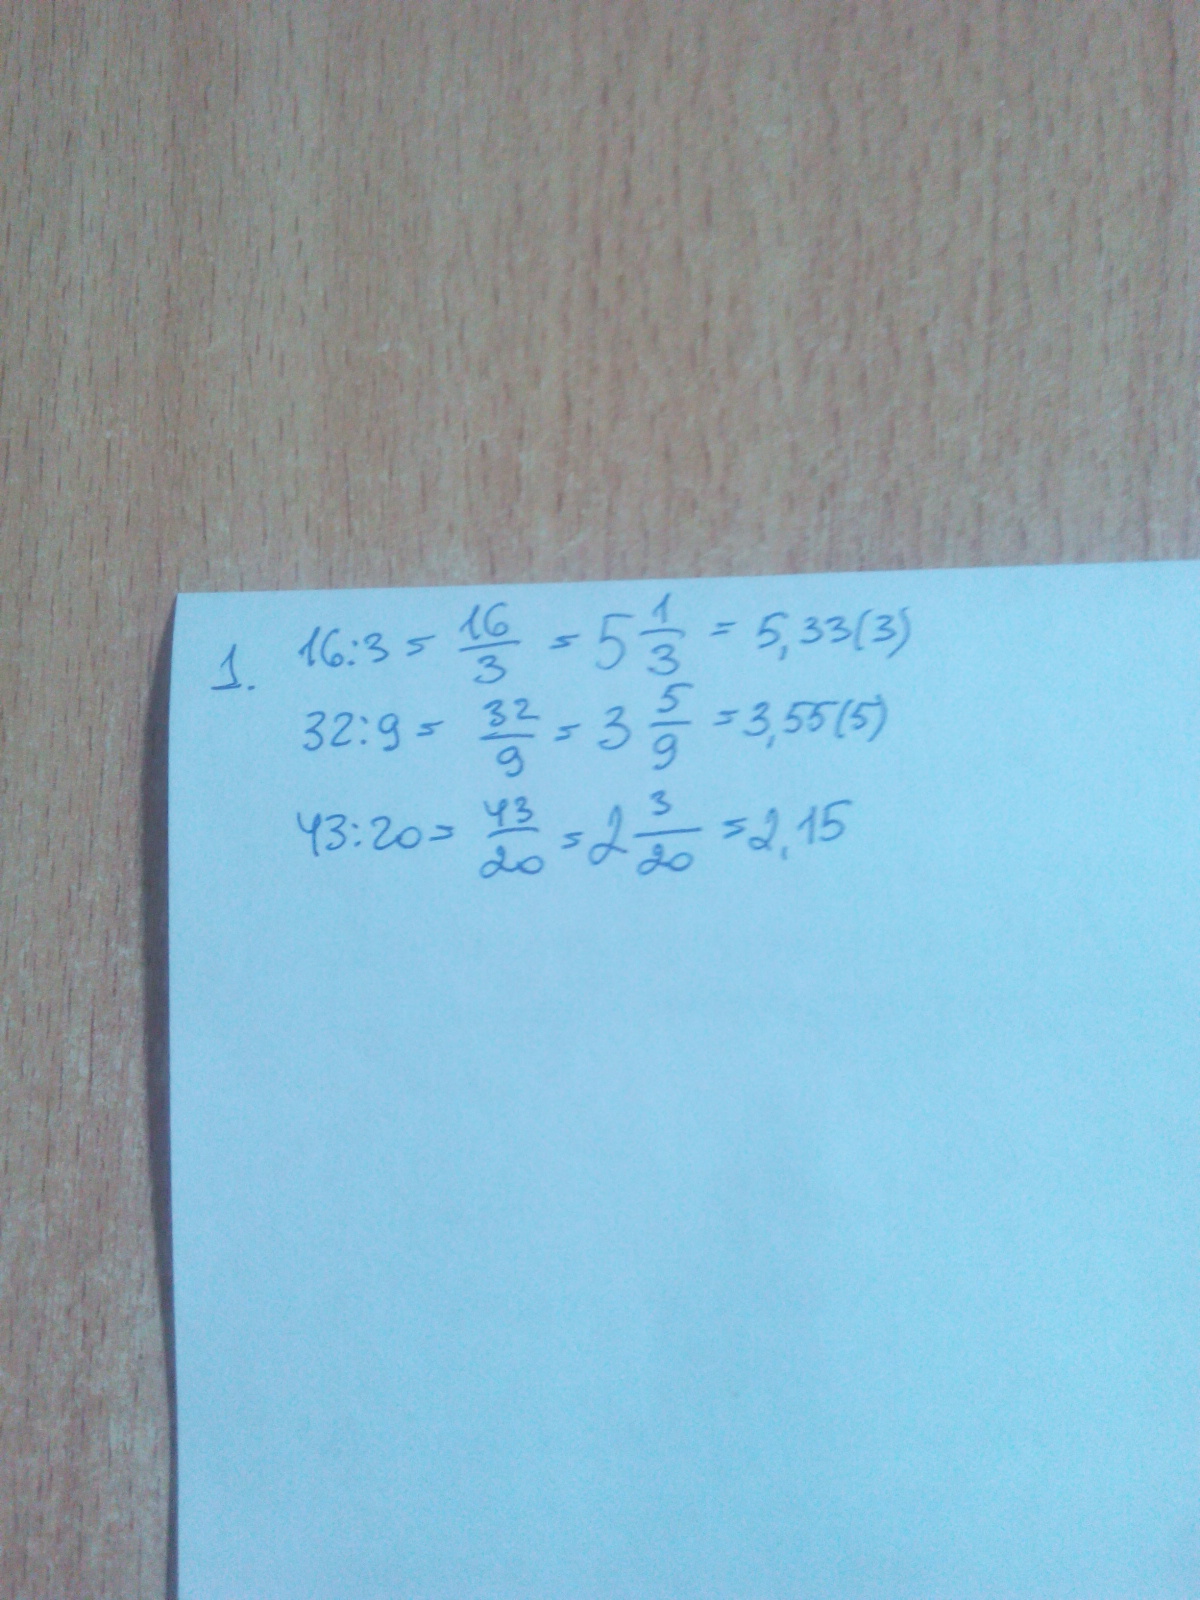 1. 16:3 = 16/3 = 5 1/3 = 5,33(3)
32:9 = 32/9 = 3 5/9 = 3,55(5)
43:20 = 43/20 = 2 3/20 = 2,15